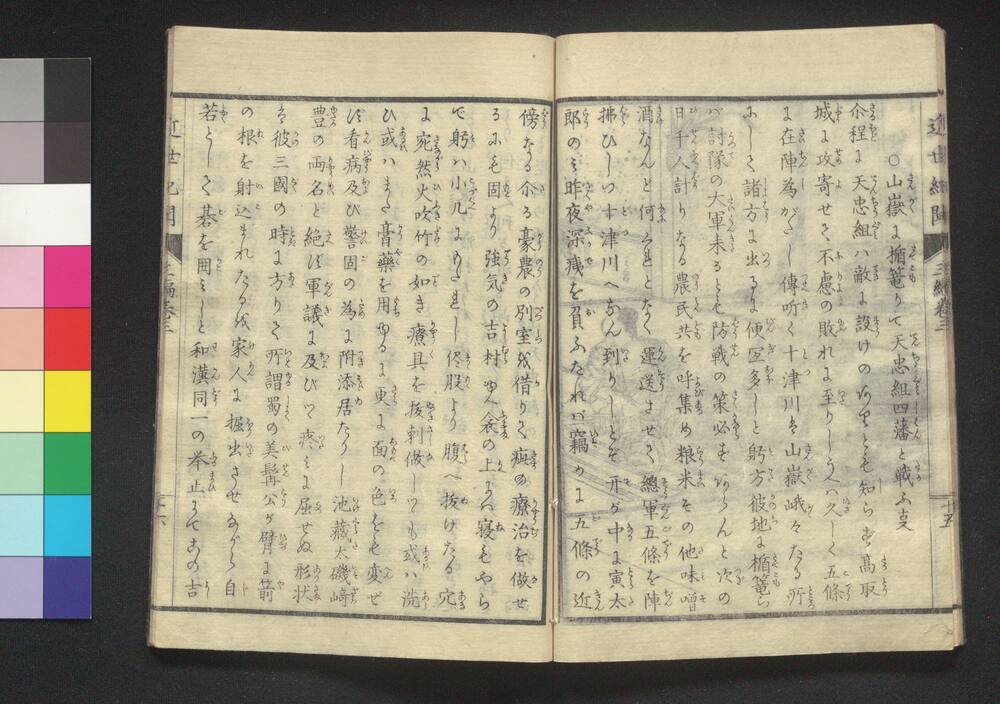 ○山嶽に楯篭りて天忠組四藩と戦ふ支
尒程に天忠組ハ敵に設けのありとも知らず髙取
城に攻寄せて不慮の敗れに至りしうへハ久しく五條
に在陣為がたし傳听く十津川は山嶽峨々たる所
にして諸方に出るに便宜多しと躬方彼地に楯篭ら
バ討隊の大軍来るとも防戦の策必ずあらんと次の
日千人計りなる農民共を呼集め粮米その他味噌
酒なんと何くれとなく運送させて總軍五條を陣
拂ひしつ十津川へなん到りしとぞ开が中に寅太
郎のミ昨夜深痍を負ふたれバ竊かに五條の近
傍なる尒る豪農の別室を借りて疵の療治を做せ
るにも固より強気の吉村ゆへ衾の上にハ寝もやら
で躬ハ小几にもたれし侭股より腹へ抜けたる穴
に宛然火吹竹の如き療具を抜刺做しつゝも或ハ洗
ひ或ハまた膏藥を用ゆるに更に面の色をも変ぜ
ず看病及び警固の為に附添居たりし池藏太磯﨑
豊の両名と絶ず軍議に及びつゝ疼ミに屈せぬ形状
は彼三國の時に方りて所謂蜀の美髯公が臂に箭
の根を射込まれたるを家人に掘出させながら自
若として碁を囲ミしと和漢同一の挙止にてこの吉
三編巻三
十五